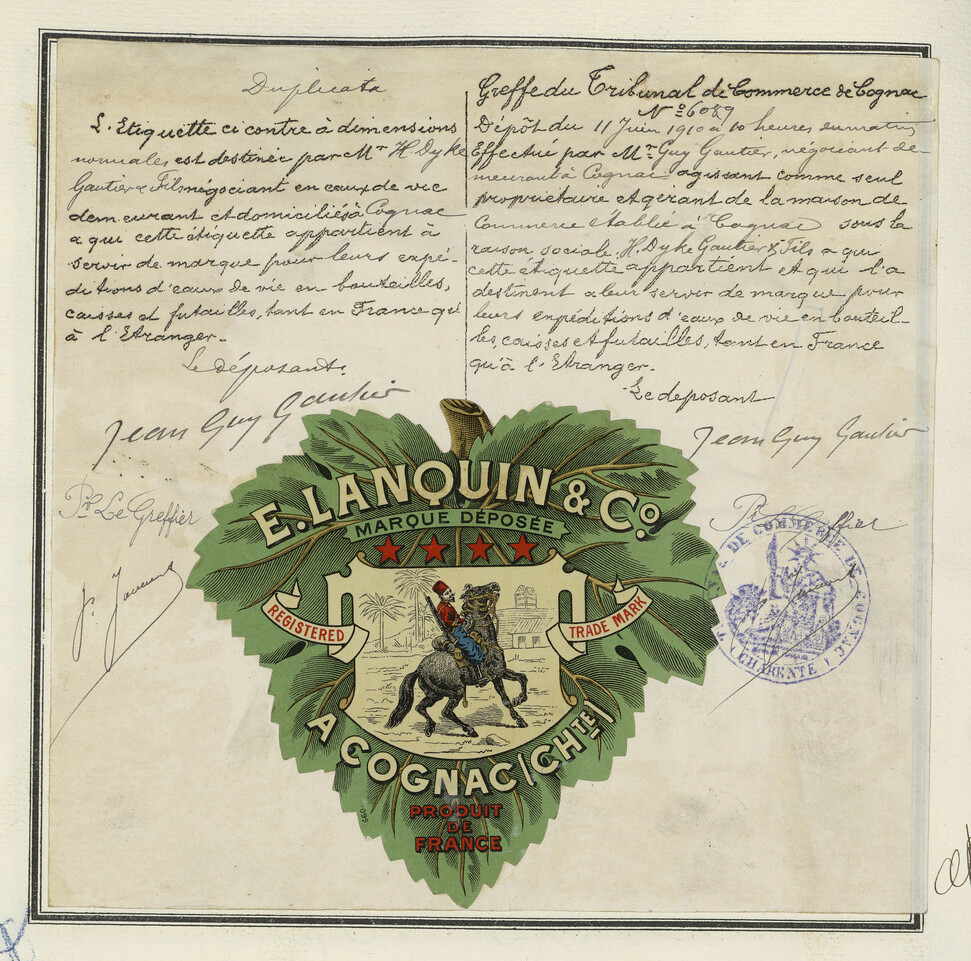 Duplicata
L'Etiquette ci contre à dimensions
normales est destinée par Mr H. Dyke
Gautier & Fils négociant en eaux de vie
demeurant et domiciliés à Cognac
a qui cette étiquette appartient à
servir de marque pour leurs expé-
ditions d'eaux de vie en bouteilles,
caisses et futailles, tant en France qu'
à l'Etranger.
Le déposant.
Jean Guy Gautier
Pr Le Greffier
Greffe du Tribunal de Commerce de Cognac
No 6089
Dépôt du 11 Juin 1910 à 10 heures du matin
Effectué par Mr Guy Gautier, négociant de-
meurant à Cognac agissant comme seul
propriétaire et gérant de la maison de
Commerce établie à Cognac sous la
raison sociale H. Dyke Gautier & Fils a qui
cette étiquette appartient et qui l'a
destinent a leur servir de marque pour
leurs expéditions d'eaux de vie en bouteil-
les, caisses et futailles, tant en France
qu'à l'Etranger.
Le deposant
Jean Guy Gautier
Pr Le Greffier
E. LANQUIN & Co.
MARQUE DÉPOSÉE
REGISTERED
TRADE MARK
A COGNAC (CHTE)
PRODUIT
DE
FRANCE
660
DE COMMERCE DE COGNAC
(CHARENTE)